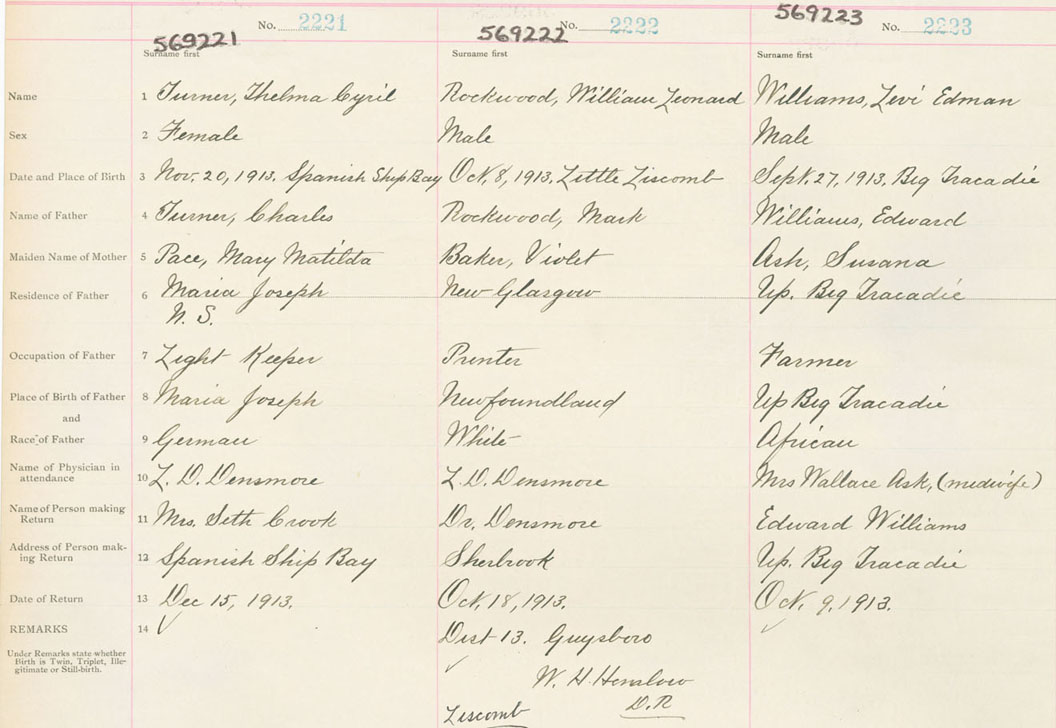 No. 2221 No. 2222 No. 2223
569221 569222 569223
Surname first Surname first Surname first
Name 1 Turner, Thelma Cyril Rockwood, William Leonard Williams, Levi Edman
Sex 2 Female Male Male
Date and Place of Birth 3 Nov. 20, 1913. Spanish Ship Bay Oct. 8, 1913, Little Liscomb Sept. 27, 1913, Big Tracadie
Name of Father 4 Turner, Charles Rockwood, Mark Williams, Edward
Maiden Name of Mother 5 Pace, Mary Matilda Baker, Violet Ash, Susana
Residence of Father 6 Maria Joseph New Glasgow Up. Big Tracadie
N. S.
Occupation of Father 7 Light Keeper Printer Farmer
Place of Birth of Father 8 Maria Joseph Newfoundland Up Big Tracadie
and
Race of Father 9 German White African
Name of Physician in
attendance 10 L. D. Densmore L. D. Densmore Mrs Wallace Ash, (midwife)
Name of Person making
Return 11 Mrs. Seth Crook Dr. Densmore Edward Williams
Address of Person mak-
ing Return 12 Spanish Ship Bay Sherbrook Up. Big Tracadie
Date of Return 13 Dec 15, 1913. Oct. 18, 1913. Oct. 9, 1913.
REMARKS 14 Dist 13. Guysboro
Under Remarks state whether
Birth is Twin, Triplet, Ille-
gitimate or Still-birth.
W. H. Henslow
D. R
Liscomb